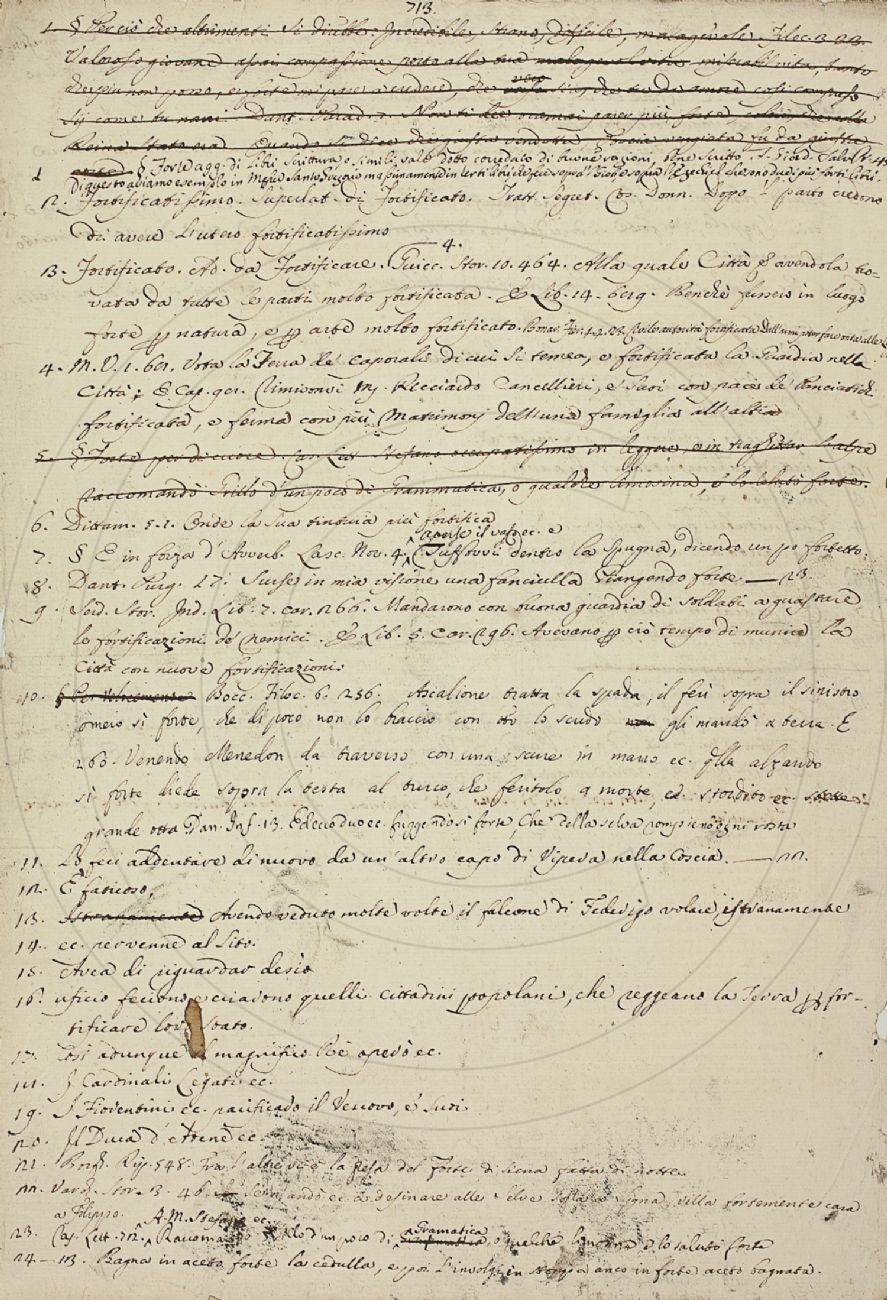 713.
1. § Per ciò che altrimenti si direbbe: Incredibile, Strano, difficile, malagevole. Filoc. 3. 23.
Valoroso giovane assai compassione porto alla tua malagevol vita miserabil vita, tanto
che più non posso, e
sij come tu narri. Dant. Parad. 7. Non ti dee oramai parer più forte,
Quando si dice che giusta vendetta Poscia vengiata fu da giusta
corte. § Forte agg. di Libri Scrittura o simili, vale dotto corredato di buone ragioni, bene scritto,
Di questo abbiamo esempio in
2. Fortificatissimo. Superlat. di Fortificato. Tratt. Segret. Cos. Donn. Dopo 'l parto credono
di avere l'utero fortificatissimo
— 4.
3. Fortificato. Ad. da Fortificare. Guicc. Stor. 10. 464. Alla quale Città e avendola tro-
vata da tutte le parti molto fortificata. E Lib. 14. 619. Benchè fussero in luogo
forte per natura, e per arte molto fortificato.
4. M. V. 1. 61. Vota la Terra de' caporali di cui si temea, e fortificata la Guardia nella
Città; E Cap. Rimisonvi Mj. Ricciardo Cancellieri, e Suoi con pace de' Panciatichi
fortificata, e ferma con più Matrimonj dell'una famiglia all'altra
5. § Forte per di cuore. Car. Lett. Stefano occupatissimo in leggere, e in tragittar
raccomandò Grillo d'un poco di Grammatica, o qualche limosina, e lo salutò forte.
6. Dittam. 5. 1. Onde la sua tintura più fortifica
aperse il vaso ec. e
7. § E in forza d'Avverb. Lasc. Nov. 4. Tuffovvi dentro la Spugna, dicendo un po fortetto.
8. Dant. Purg. 27. Surse in mia visione una fanciulla Piangendo forte. — 23.
9. Serd. Stor. Ind. Lib. 7. car. 266. Mandarono con buona guardia di soldati a guastare
le fortificazioni de' nemici. E Lib. 5. Car. 196. Avevano per ciò tempo di munire la
Città con nuove fortificazioni.
10. § Per Velocemente Bocc. Filoc. 6. 256. Ascalione tratta la spada, il ferì sopra il sinistro
omero sì forte, che di poco non lo braccio con tto lo scudo non gli mandò a terra. E
260. Venendo Menedon da traverso con una scure in mano ec. qlla alzando
sì forte diede sopra la testa al turco, che feritolo a morte, ed stordito ec. stette
grande otta Dan. Inf. 13. Ed ecco duo ec. fuggendo sì forte, Che della selva rompieno ogni rosta
11. Lo feci addentare di nuovo da un'altro capo di Vipera nella Coscia. — 22.
12. È faticoso,
13. Istranamente Avendo veduto molte volte il falcone di Federigo volare, istranamente
14. ec. pervenne al Sito.
15. Avea di riguardar desio
16. uficio feciono e criarono quelli cittadini popolani, che reggeano la Terra per for-
tificare loro stato.
17. Così adunque il magnifico Rè operò ec.
18. I Cardinali Legati ec.
19. I Fiorentini ec. pacificato il Vescovo, e Suoi
20. Il Duca d'Atene ec.
21. Borgh. Rip. 548. Fra l'altre vi è la presa del Forte di Siena fatta di notte.
22. Varch. Stor. 3. 46. Se n'andò ec. a desinare alle Selve sopra a Signa, villa fortemente cara
a Filippo.
A. M. Stefano ec.
23. Car. Lett. 72. Raccomando Grillo d'un poco di Gramatica, o qualche limosina, e lo saluto forte
24. — 13. Bagna in aceto forte la cedulla, e poi l'involgi in stoppa anco in forte aceto bagnata.